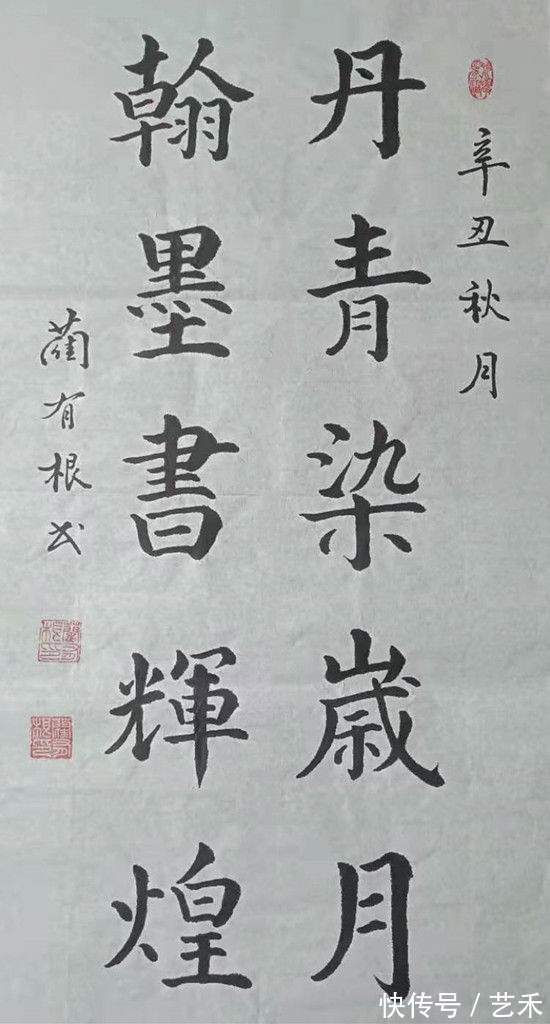 辛丑秋月
丹青染歳月
翰墨書輝煌
藺有根书
快传号 / 艺禾